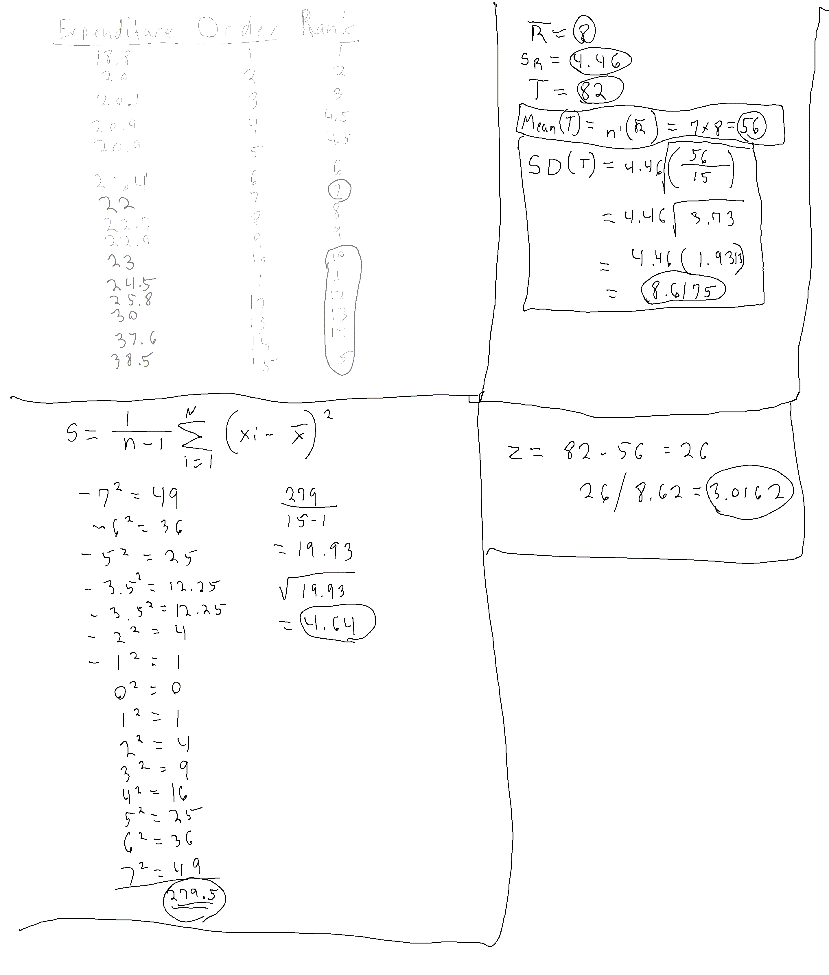 Expenditure Order Rank
18.8 1 1
20 2 2
20.1 3 3
20.9 4 4.5
20.9 5 4.5
21.4 6 6
22 7 7
22.5 8 8
22.9 9 9
23 10 10
24.5
25.8 12
30
37.6
38.5 15
R̅ = 8
SR = 4.46
T = 82
Mean(T) = n'(R̅) = 7 x 8 = 56
SD(T) = 4.46 √(56/15)
= 4.46 √3.73
= 4.46 (1.931)
= 8.6175
S = 1/(n-1) Σ i=1 N (xi - x̅)²
-7² = 49
-6² = 36
-5² = 25
-3.5² = 12.25
-3.5² = 12.25
-2² = 4
-1² = 1
0² = 0
1² = 1
2² = 4
3² = 9
4² = 16
5² = 25
6² = 36
7² = 49
279.5
279
15-1
= 19.93
√19.93
= 4.64
z = 82 - 56 = 26
26/8.62 = 3.0162